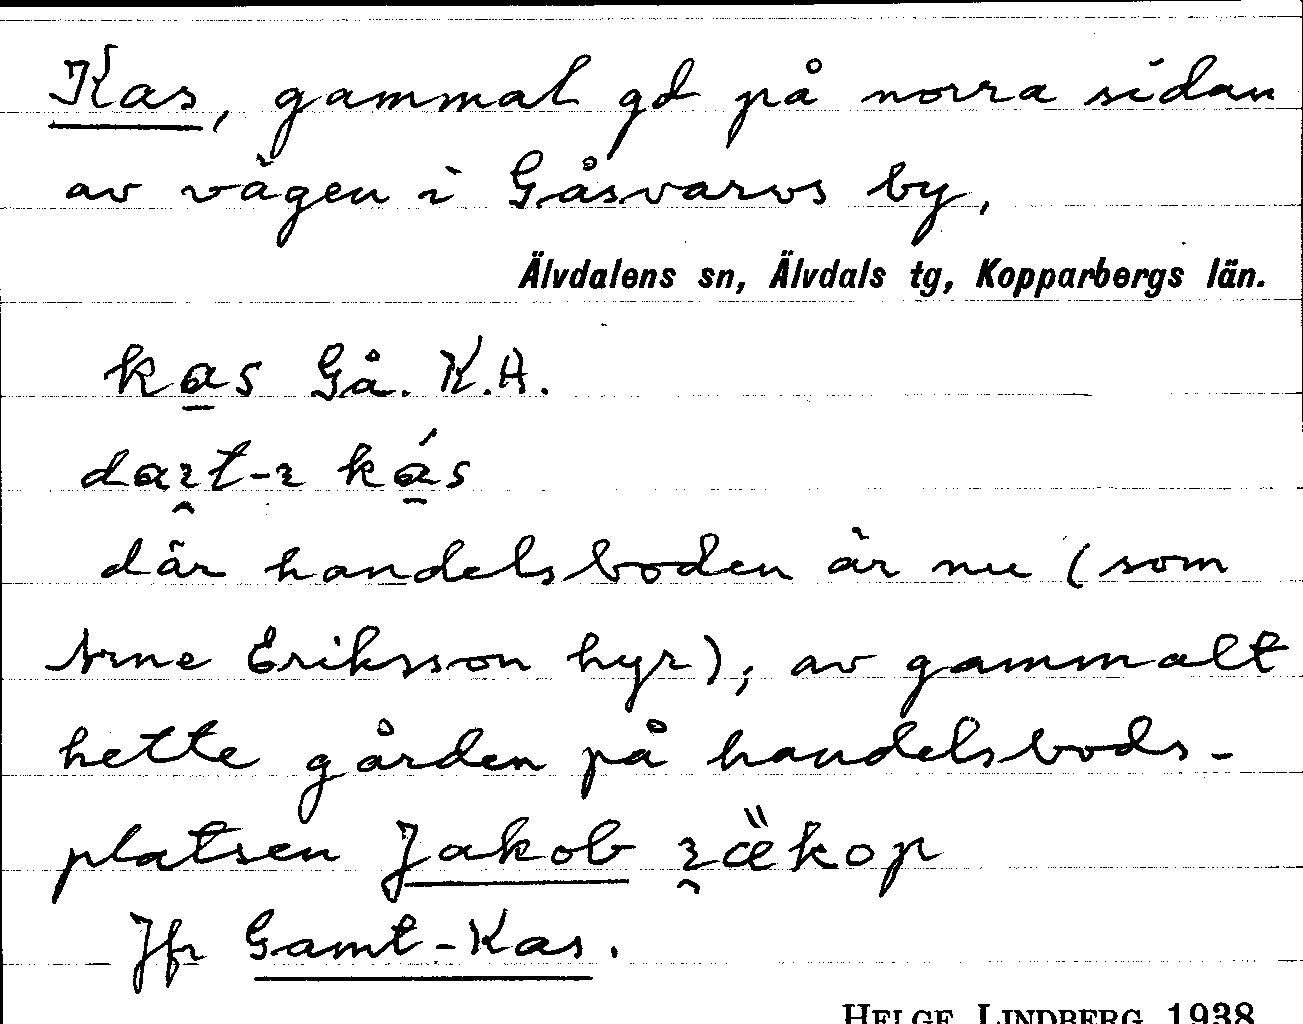 Kas, gammal gd på norra sidan
av vägen i Gåsvarvs by,
Älvdalens sn, Älvdals tg, Kopparbergs län.
kas Gå. K.A.
kás
där handelsboden är nu (som
Arne Eriksson hyr); av gammalt
hette gården på handelsbods-
platsen Jakob
Jfr Gamt-Kas.
HELGE LINDBERG 1938